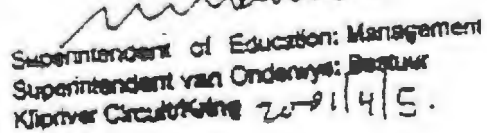 Superintendent of Education: Management
Superintendent van Onderwys: Bestuur
Klipriver Circuit/Kring